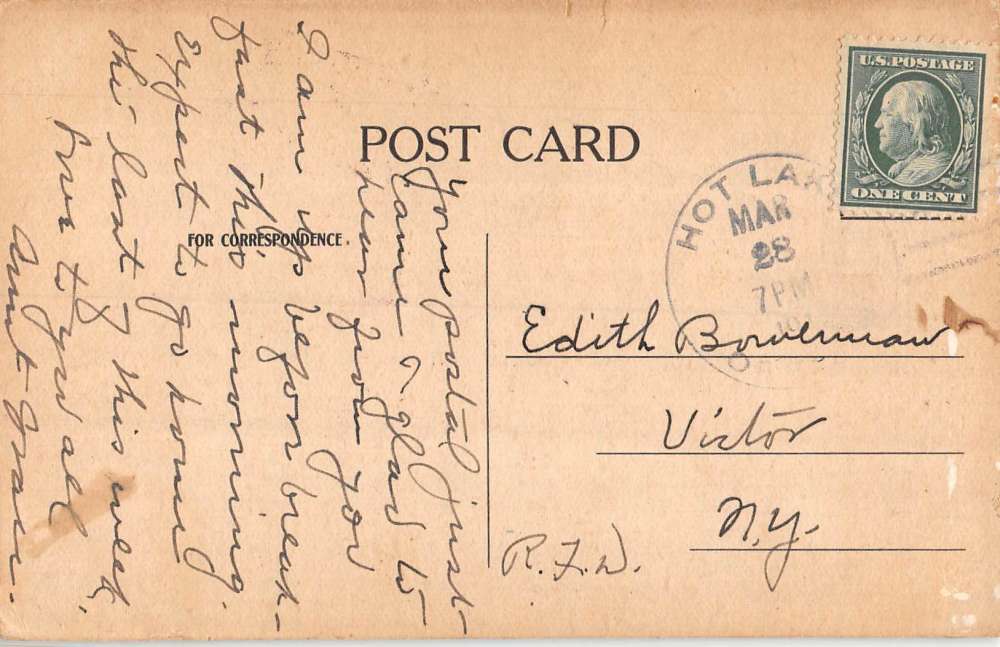 POST CARD
FOR CORRESPONDENCE.
Your postal just
came & glad to
hear from you
I am up before break-
fast this morning.
Expect to go home
the last of this week.
love to you all
Aunt Grace.
U.S. POSTAGE
ONE CENT
HOT LA
MAR
28
7 PM
O
Edith Bowerman
Victor
N.Y.
R.F.D.